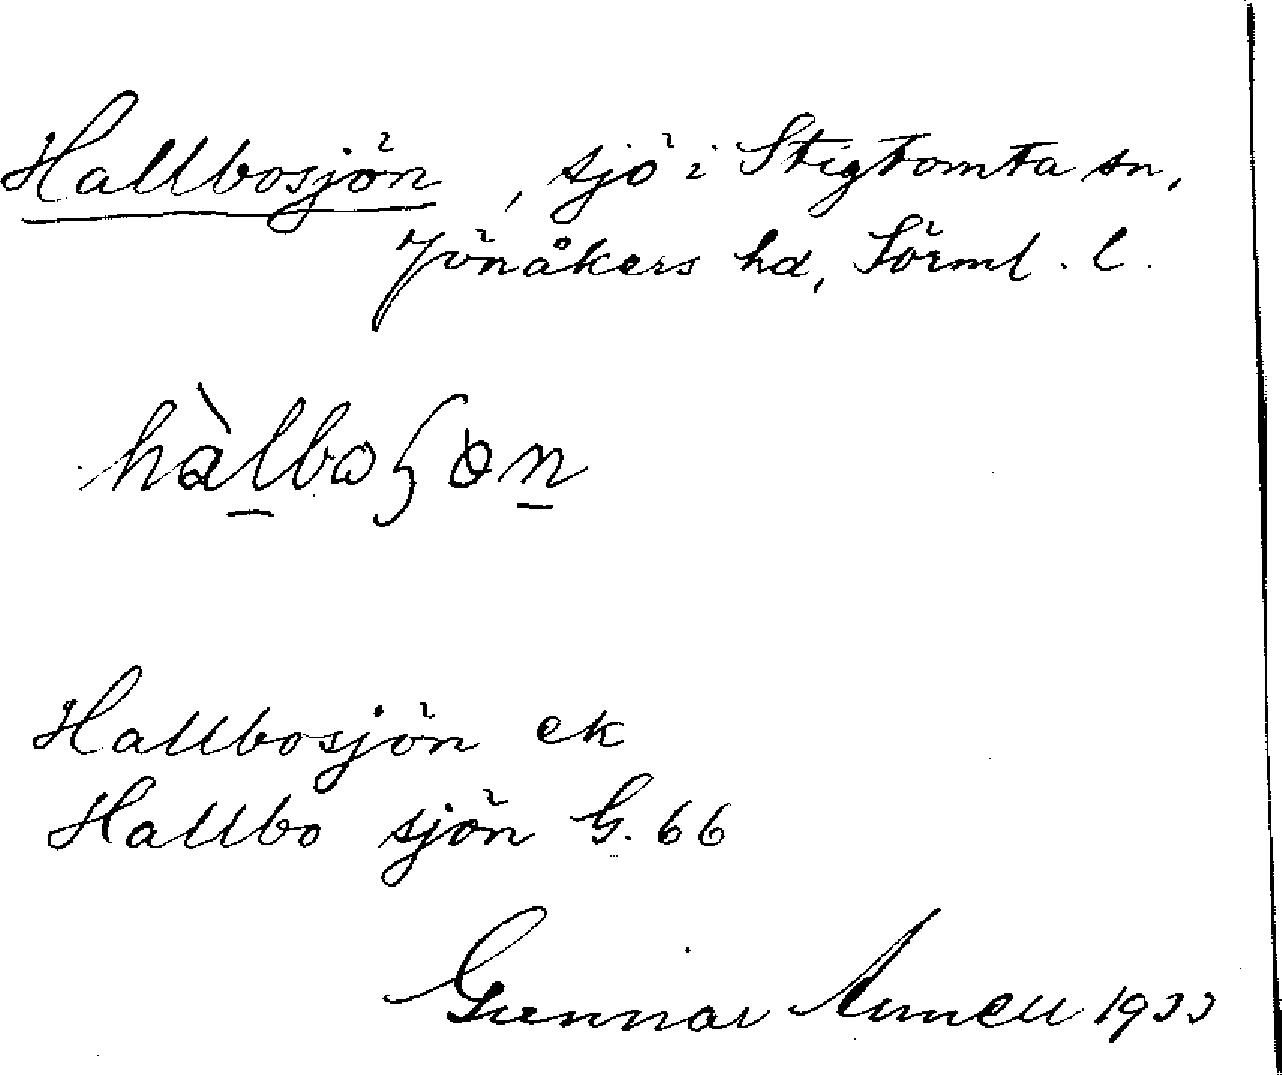 Hallbosjön, sjö i Stigtomta sn,
Jönåkers hd, Sörml. l.
Hallbosjön ek
Hallbo sjön G. 66
Gunnar 1933